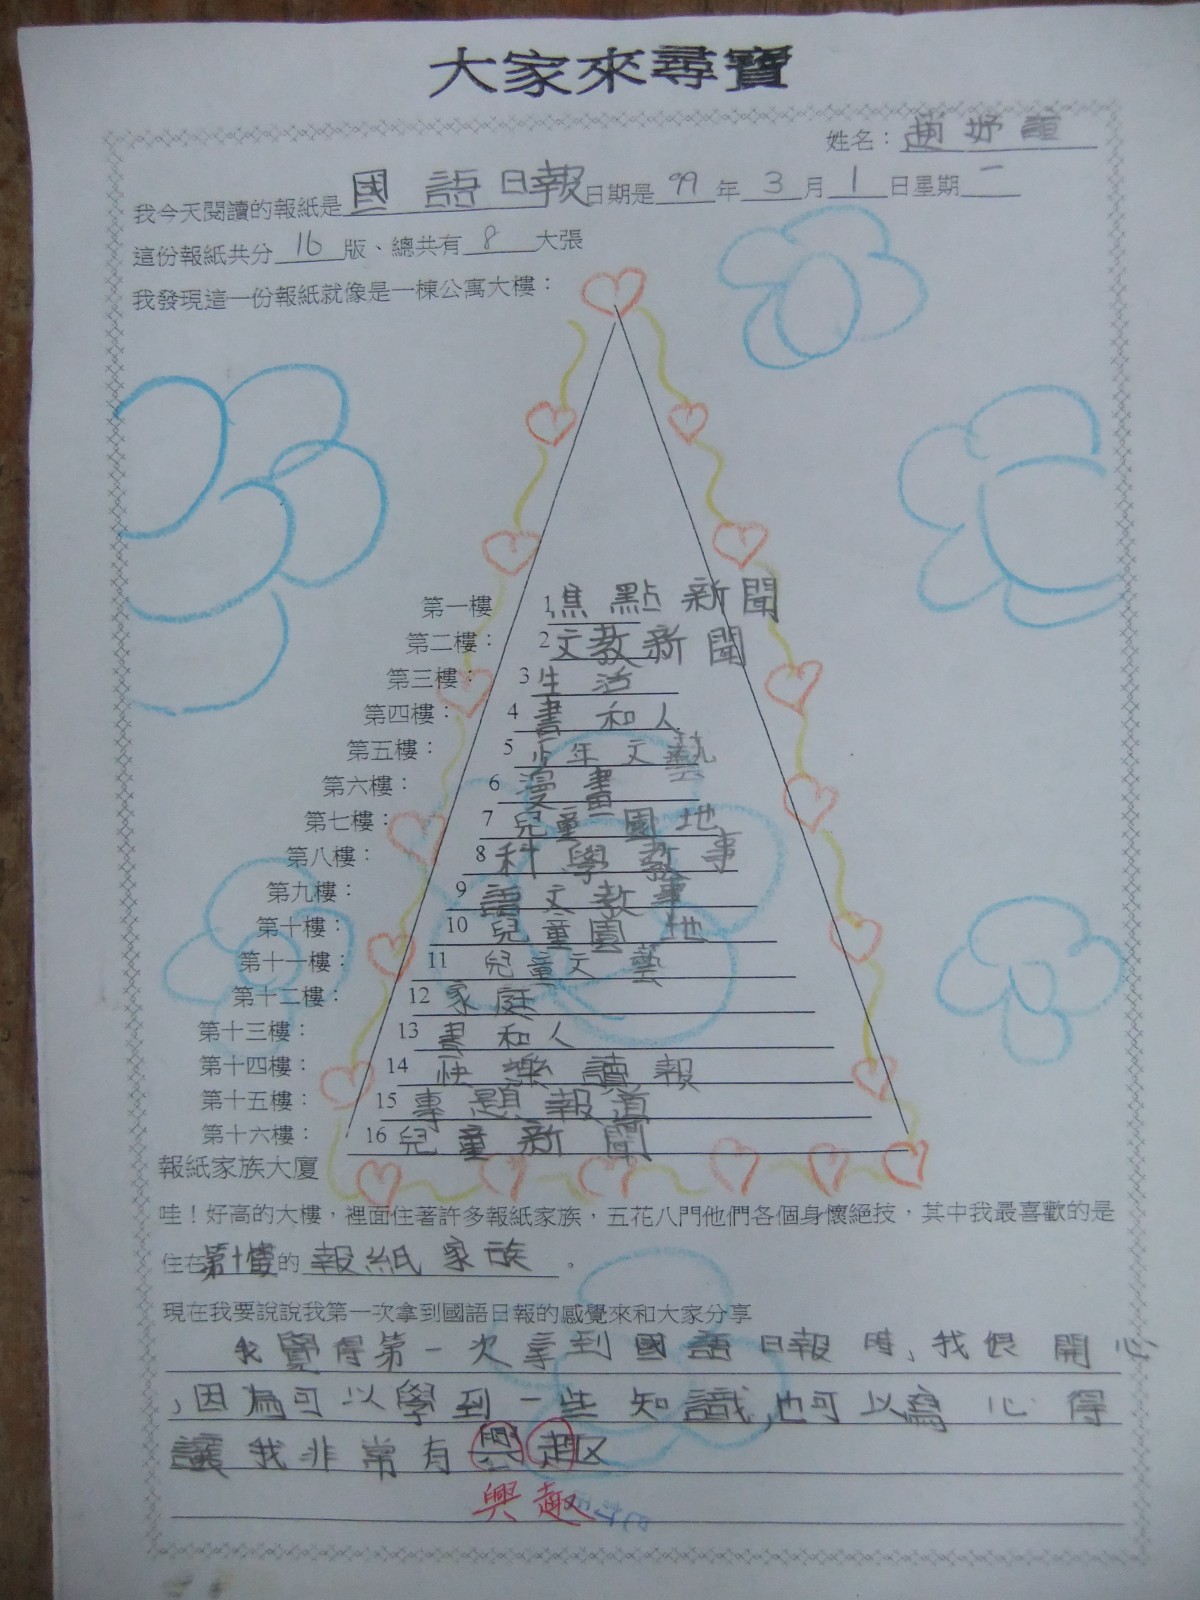 大家來尋寶
姓名：趙妤誼
我今天閱讀的報紙是國語日報日期是99年3月1日星期一
這份報紙共分16版、總共有8大張
我發現這一份報紙就像是一棟公寓大樓：
第一樓 1焦點新聞
第二樓： 2文教新聞
第三樓： 3生活
第四樓： 4書和人
第五樓： 5少年文藝
第六樓： 6漫畫
第七樓： 7兒童園地
第八樓： 8科學教事
第九樓： 9語文教事
第十樓： 10兒童園地
第十一樓： 11兒童文藝
第十二樓： 12家庭
第十三樓： 13書和人
第十四樓： 14快樂讀報
第十五樓： 15專題報道
第十六樓： 16兒童新聞
報紙家族大廈
哇！好高的大樓，裡面住著許多報紙家族，五花八門他們各個身懷絕技，其中我最喜歡的是
住在第十樓的報紙家族。
現在我要說說我第一次拿到國語日報的感覺來和大家分享
我覺得第一次拿到國語日報時,我很開心
,因為可以學到一些知識,也可以為心得
讓我非常有
興趣